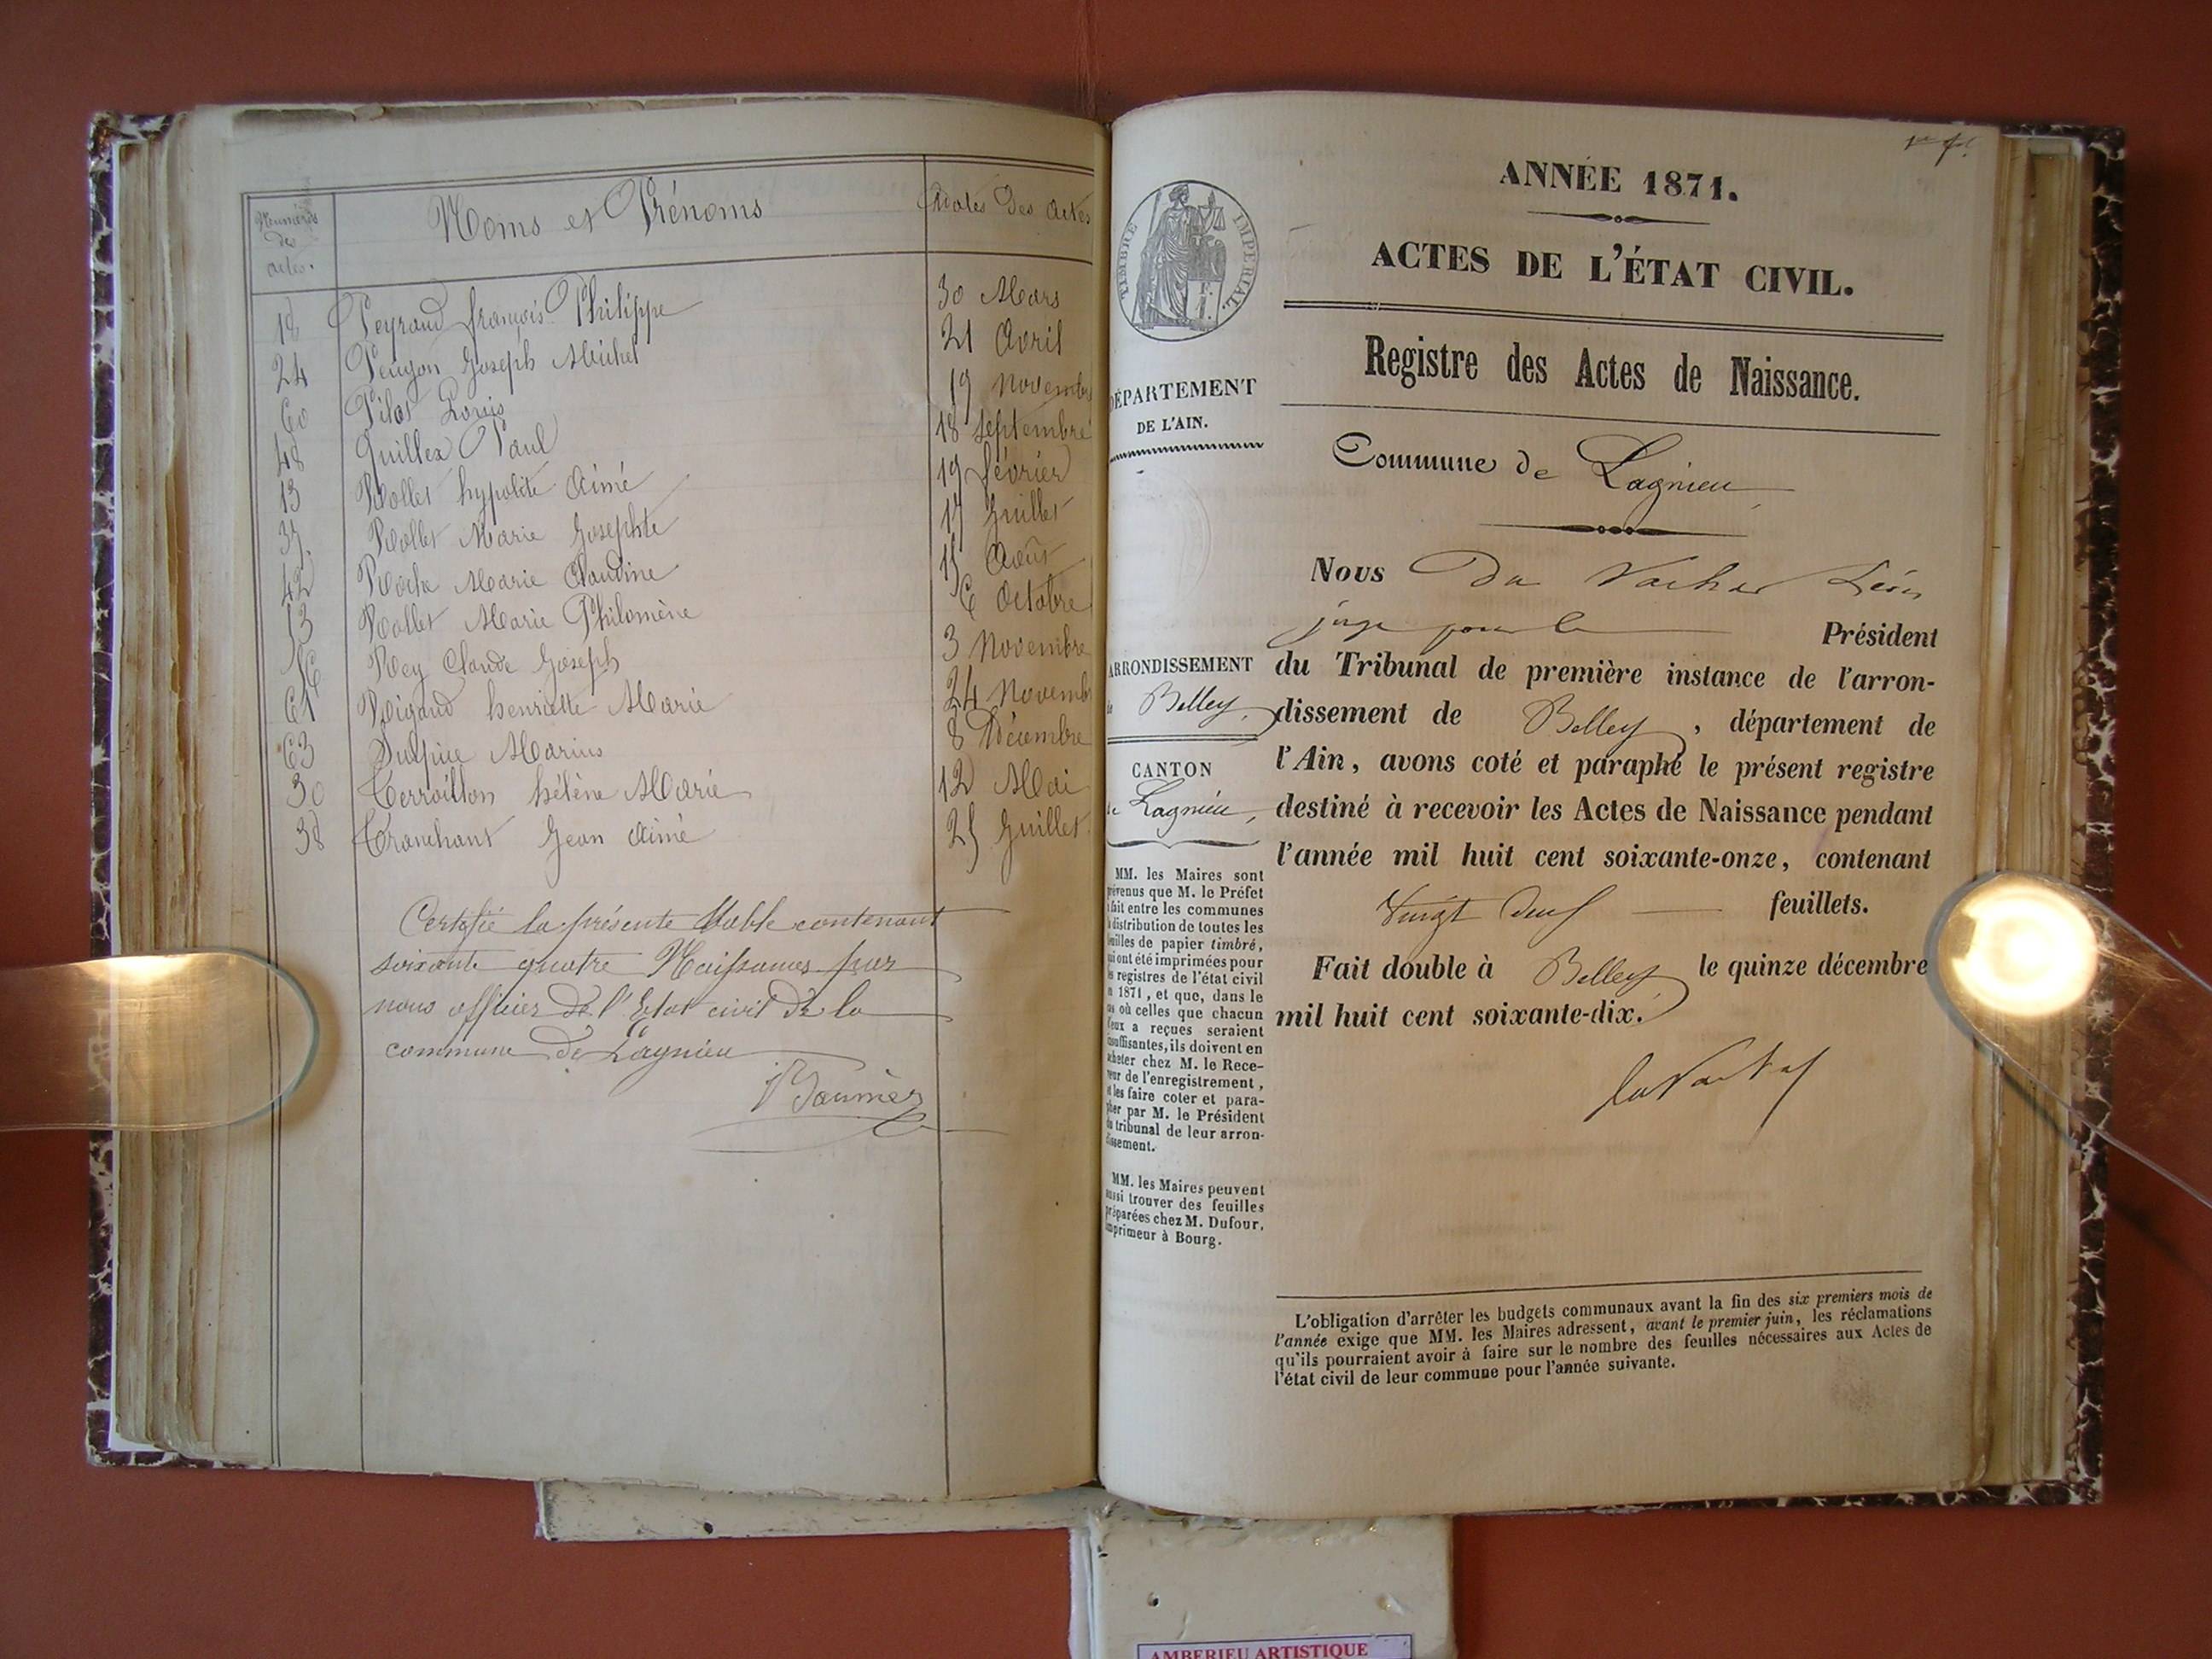 Numéros des actes.
Noms et Prénoms
Dates des actes
18 Peyraud françois Philippe 30 Mars
24 Peugon Joseph Michel 21 Avril
60 Pilot Louis 19 Novembre
48 Quillex Paul 18 Septembre
13 Rollet hypolite Aimé 19 février
37. Rollet Marie Josephte 17 Juillet
42 Roche Marie Claudine 15 Août
53 Rollet Marie Philomène 6 Octobre
56 Rey Claude Joseph 3 Novembre
61 Rigaud henriette Marie 24 Novemb
63 Sulpice Marius 8 Décembre
30 Terroillon hélène Marie 12 Mai
38 Tranchant Jean Aimé 25 Juillet
Certifié la présente table contenant
soixante quatre Naissances par
nous officier de l'Etat civil de la
commune de Lagnieu
ANNÉE 1871.
ACTES DE L'ÉTAT CIVIL.
TIMBRE IMPÉRIAL.
Registre des Actes de Naissance.
DÉPARTEMENT
DE L'AIN.
Commune de Lagnieu
Nous Du Vachat Léon
juge pour le Président
ARRONDISSEMENT
de Belley,
du Tribunal de première instance de l'arron-
dissement de Belley, département de
l'Ain, avons coté et paraphé le présent registre
destiné à recevoir les Actes de Naissance pendant
l'année mil huit cent soixante-onze, contenant
Vingt deux feuillets.
Fait double à Belley le quinze décembre
mil huit cent soixante-dix.
CANTON
de Lagnieu,
MM. les Maires sont
prévenus que M. le Préfet
a fait entre les communes
la distribution de toutes les
feuilles de papier timbré,
qui ont été imprimées pour
les registres de l'état civil
en 1871, et que, dans le
cas où celles que chacun
d'eux a reçues seraient
insuffisantes, ils doivent en
acheter chez M. le Rece-
veur de l'enregistrement,
et les faire coter et para-
pher par M. le Président
du tribunal de leur arron-
dissement.
MM. les Maires peuvent
aussi trouver des feuilles
préparées chez M. Dufour,
imprimeur à Bourg.
L'obligation d'arrêter les budgets communaux avant la fin des six premiers mois de
l'année exige que MM. les Maires adressent, avant le premier juin, les réclamations
qu'ils pourraient avoir à faire sur le nombre des feuilles nécessaires aux Actes de
l'état civil de leur commune pour l'année suivante.
AMBERIEU ARTISTIQUE